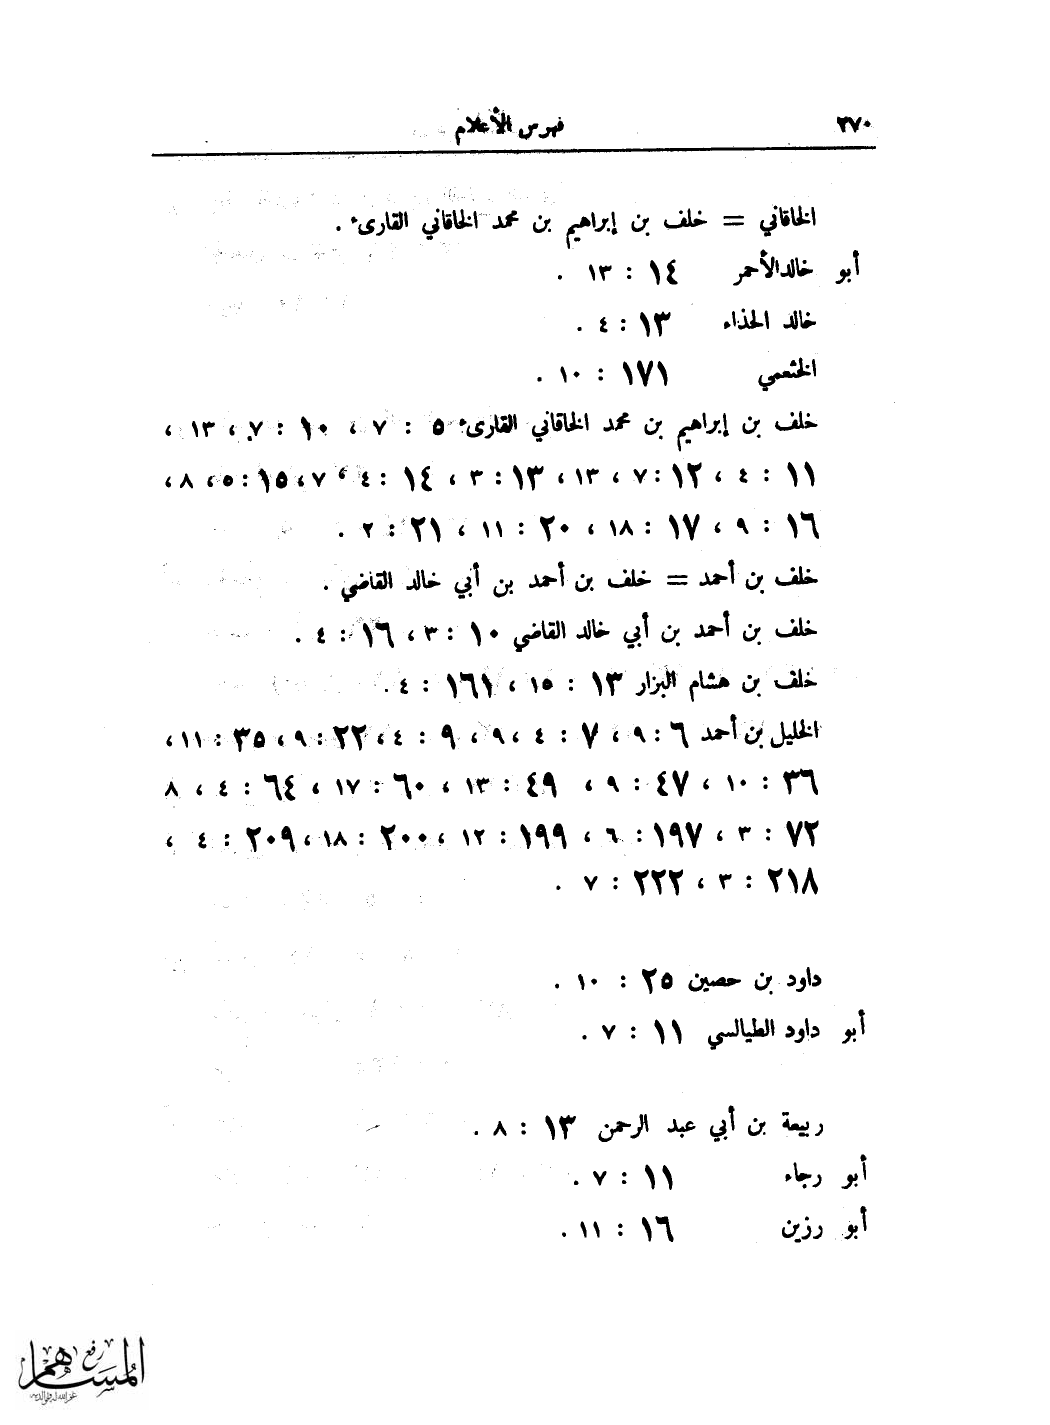 ٢٧٠
فهرس الأعلام
الخاقاني = خلف بن إبراهيم بن محمد الخاقاني القارىء .
أبو خالد الأحمر ١٤ : ١٣ .
خالد الحذاء ١٣ : ٤ .
الخثعمي ١٧١ : ١٠ .
خلف بن إبراهيم بن محمد الخاقاني القارىء ٥ : ٧ ، ١٠ : ٧ ، ١٣ ،
١١ : ٤ ، ١٢ : ٧ ، ١٣ ، ١٣ : ٣ ، ١٤ : ٤ ، ٧ ، ١٥ : ٥ ، ٨ ،
١٦ : ٩ ، ١٧ : ١٨ ، ٢٠ : ١١ ، ٢١ : ٢ .
خلف بن أحمد = خلف بن أحمد بن أبي خالد القاضي .
خلف بن أحمد بن أبي خالد القاضي ١٠ : ٣ ، ١٦ : ٤ .
خلف بن هشام البزار ١٣ : ١٥ ، ١٦١ : ٤ .
الخليل بن أحمد ٦ : ٩ ، ٧ : ٤ ، ٩ ، ٩ : ٤ ، ٢٢ : ٩ ، ٣٥ : ١١ ،
٣٦ : ١٠ ، ٤٧ : ٩ ، ٤٩ : ١٣ ، ٦٠ : ١٧ ، ٦٤ : ٤ ، ٨
٧٢ : ٣ ، ١٩٧ : ٦ ، ١٩٩ : ١٢ ، ٢٠٠ : ١٨ ، ٢٠٩ : ٤ ،
٢١٨ : ٣ ، ٢٢٢ : ٧ .
داود بن حصين ٢٥ : ١٠ .
أبو داود الطيالسي ١١ : ٧ .
ربيعة بن أبي عبد الرحمن ١٣ : ٨ .
أبو رجاء ١١ : ٧ .
أبو رزين ١٦ : ١١ .
رفع
المساهم